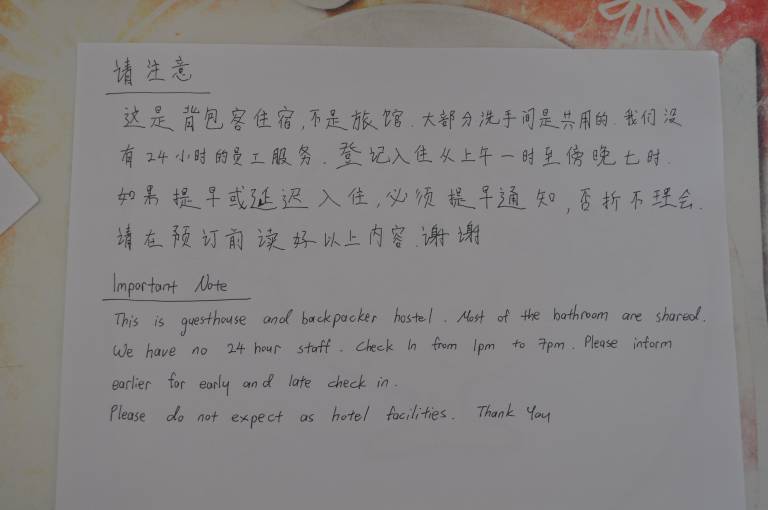 请注意
这是背包客住宿,不是旅馆.大部分洗手间是共用的.我们没
有24小时的员工服务.登记入住从上午一时至傍晚七时.
如果提早或延迟入住,必须提早通知,否折不理会.
请在预订前读好以上内容.谢谢
Important Note
This is guesthouse and backpacker hostel. Most of the bathroom are shared.
We have no 24 hour staff. Check In from 1pm to 7pm. Please inform
earlier for early and late check in.
Please do not expect as hotel facilities. Thank You